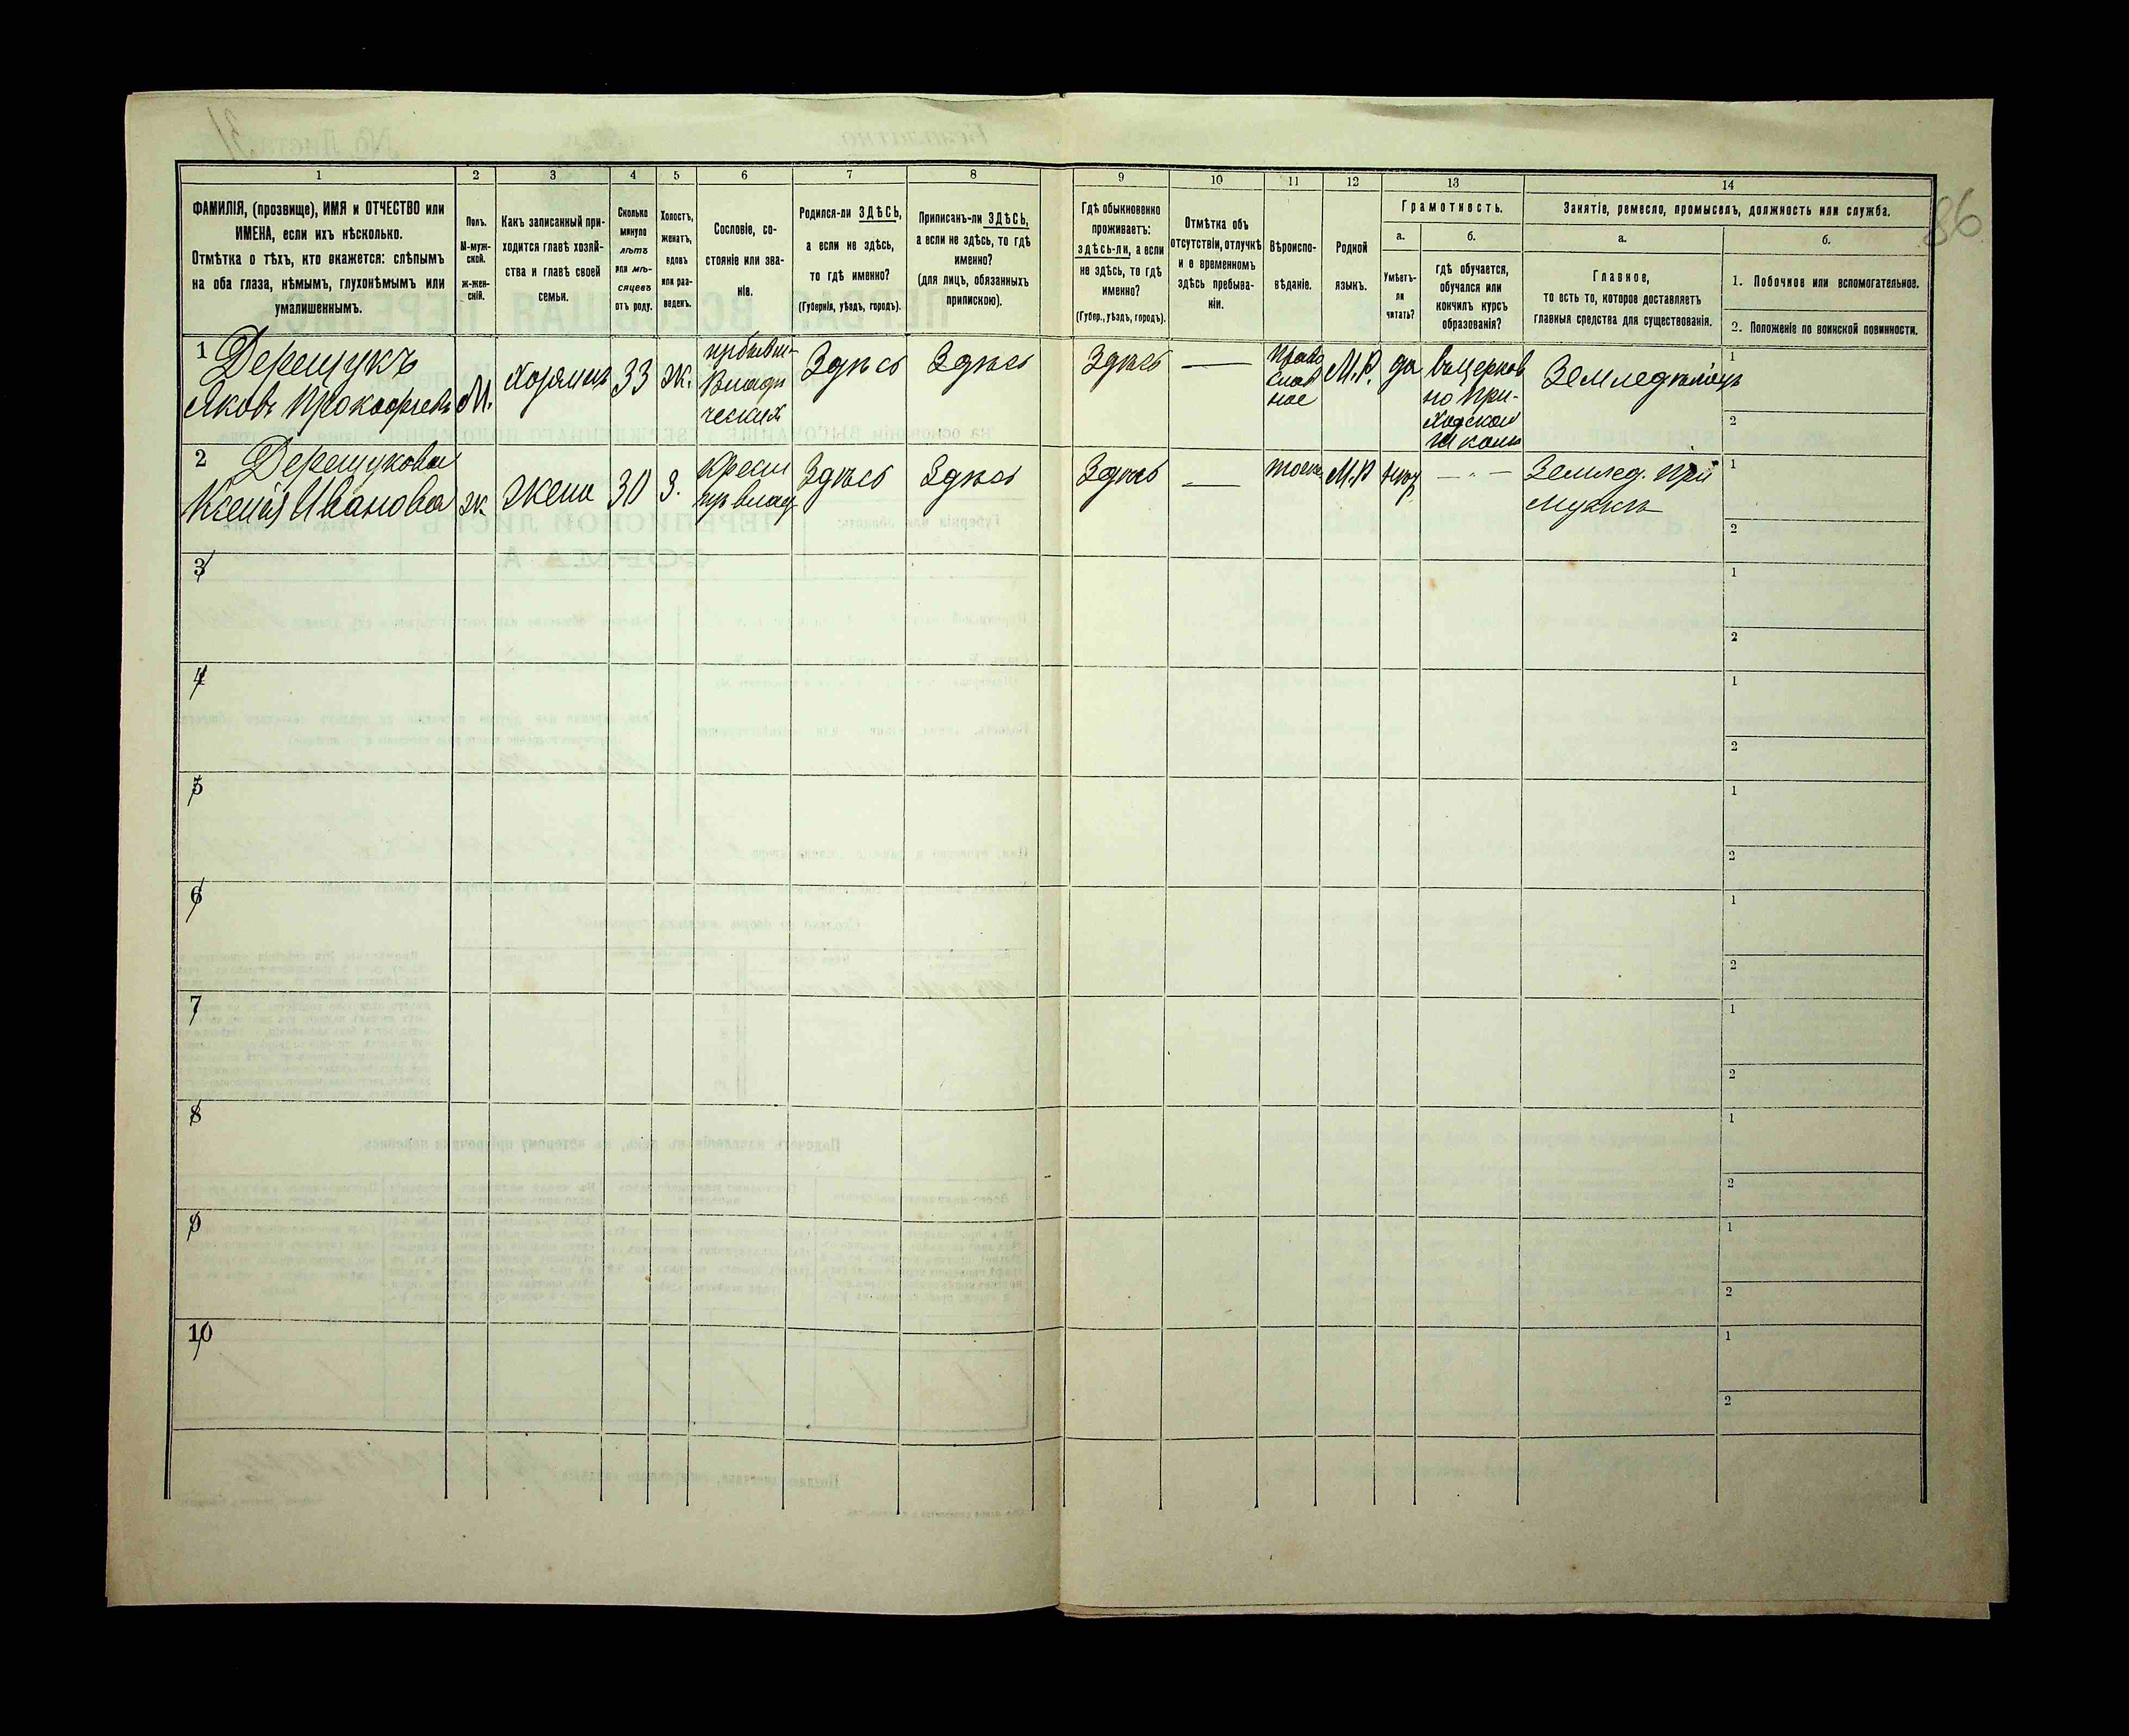 86
1 2 3 4 5 6 7 8 9 10 11 12 13 14
ФАМИЛІЯ, (прозвище), ИМЯ и ОТЧЕСТВО или
ИМЕНА, если ихъ нѣсколько.
Отмѣтка о тѣхъ, кто окажется: слѣпымъ
на оба глаза, нѣмымъ, глухонѣмымъ или
умалишеннымъ.
Полъ.
М-муж-
ской.
ж-жен-
скій.
Какъ записанный при-
ходится главѣ хозяй-
ства и главѣ своей
семьи.
Сколько
минуло
лѣтъ
или мѣ-
сяцевъ
отъ роду.
Холостъ,
женатъ,
вдовъ
или раз-
веденъ.
Сословіе, со-
стояніе или зва-
ніе.
Родился-ли ЗДѢСЬ,
а если не здѣсь,
то гдѣ именно?
(Губернія, уѣздъ, городъ).
Приписанъ-ли ЗДѢСЬ,
а если не здѣсь, то гдѣ
именно?
(для лицъ, обязанныхъ
припискою).
Гдѣ обыкновенно
проживаетъ:
здѣсь-ли, а если
не здѣсь, то гдѣ
именно?
(Губер., уѣздъ, городъ).
Отмѣтка объ
отсутствіи, отлучкѣ
и о временномъ
здѣсь пребыва-
ніи.
Вѣроиспо-
вѣданіе.
Родной
языкъ.
Грамотность.
а.
Умѣетъ-
ли
читать?
б.
гдѣ обучается,
обучался или
кончилъ курсъ
образованія?
Занятіе, ремесло, промыселъ, должность или служба.
а.
Главное,
то есть то, которое доставляетъ
главныя средства для существованія.
б.
1. Побочное или вспомогательное.
2. Положеніе по воинской повинности.
1 Дерещукъ
Яковъ Прокофьевъ
М.
Хозяинъ
33
ж.
Владѣ
ческих
Здѣсь
Здѣсь
Здѣсь
—
Право
слав
ное
М.Р.
да
въ церков
но При-
ходской
школѣ
Земледѣлецъ
1
2
2 Дерещукова
Ксенія Иванова
ж
жена
30
З.
крест
Здѣсь
Здѣсь
Здѣсь
—
тоже
М.Р
— „ —
Землед. При
мужѣ
1
2
3
1
2
4
1
2
5
1
2
6
1
2
7
1
2
8
1
2
9
1
2
10
1
2